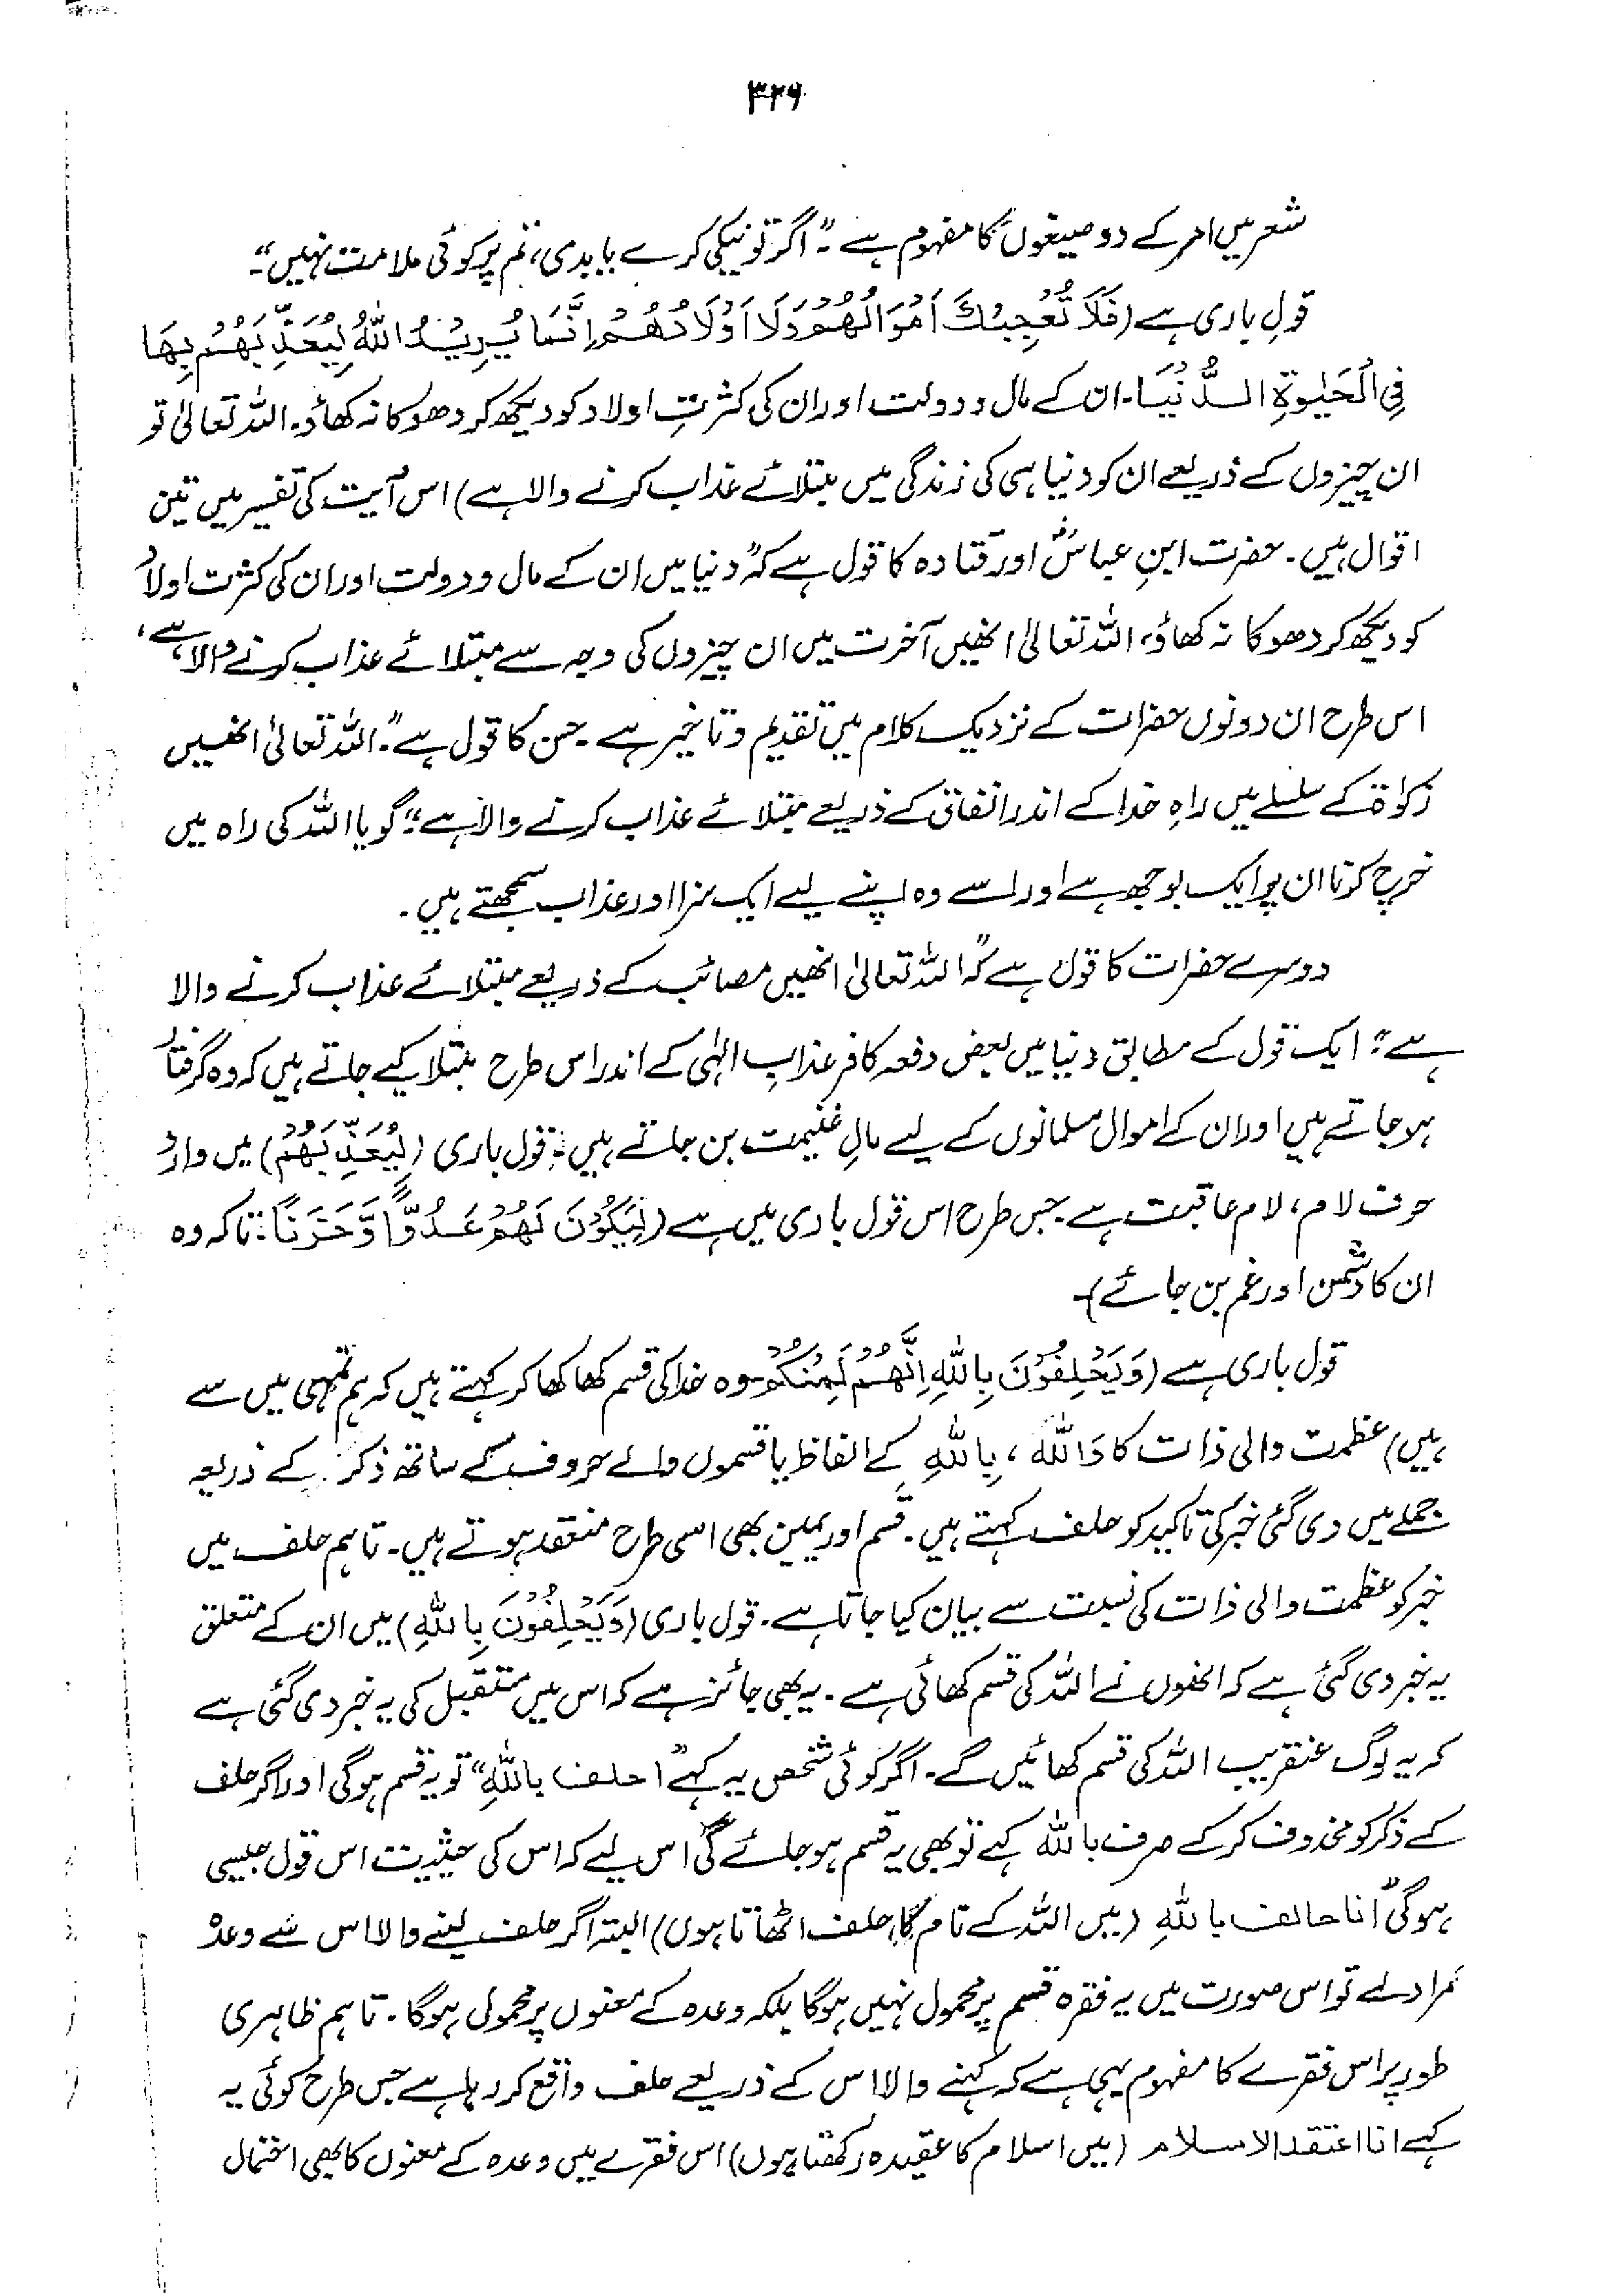 ۳۲۶
شعر میں امر کے دو صیغوں کا مفہوم ہے "۔ اگر تو نیکی کرے یا بدی، تم پر کوئی ملامت نہیں"۔
قولِ باری ہے (فَلَا تُعْجِبْكَ اَمْوَالُهُمْ وَلَا اَوْلَادُهُمْ اِنَّمَا يُرِيْدُ اللّٰهُ لِيُعَذِّبَهُمْ بِهَا
فِي الْحَيٰوةِ الدُّنْيَا۔ ان کے مال و دولت اور ان کی کثرتِ اولاد کو دیکھ کر دھوکا نہ کھاؤ۔ اللہ تعالیٰ تو
ان چیزوں کے ذریعے ان کو دنیا ہی کی زندگی میں مبتلائے عذاب کرنے والا ہے) اس آیت کی تفسیر میں تین
اقوال ہیں۔ حضرت ابنِ عباسؓ اور قتادہ کا قول ہے کہ "دنیا میں ان کے مال و دولت اور ان کی کثرت اولاد
کو دیکھ کر دھوکا نہ کھاؤ، اللہ تعالیٰ انھیں آخرت میں ان چیزوں کی وجہ سے مبتلائے عذاب کرنے والا ہے،
اس طرح ان دونوں حضرات کے نزدیک کلام میں تقدیم و تاخیر ہے۔ حسن کا قول ہے "۔ اللہ تعالیٰ انھیں
زکوٰۃ کے سلسلے میں راہِ خدا کے اندر انفاق کے ذریعے مبتلائے عذاب کرنے والا ہے" گویا اللہ کی راہ میں
خرچ کرنا ان پر ایک بوجھ ہے اور اسے وہ اپنے لیے ایک سزا اور عذاب سمجھتے ہیں۔
دوسرے حضرات کا قول ہے کہ "اللہ تعالیٰ انھیں مصائب کے ذریعے مبتلائے عذاب کرنے والا
ہے"۔ ایک قول کے مطابق دنیا میں بعض دفعہ کافر عذابِ الٰہی کے اندر اس طرح مبتلا کیے جاتے ہیں کہ وہ گرفتار
ہو جاتے ہیں اور ان کے اموال مسلمانوں کے لیے مالِ غنیمت بن جاتے ہیں۔ قول باری (لِيُعَذِّبَهُمْ) میں وارد
حرف لام، لام عاقبت ہے۔ جس طرح اس قول باری میں ہے (لِيَكُوْنَ لَهُمْ عَدُوًّا وَّحَزَنًا: تاکہ وہ
ان کا دشمن اور غم بن جائے)۔
قول باری ہے (وَيَحْلِفُوْنَ بِاللّٰهِ اِنَّهُمْ لَمِنْكُمْ۔ وہ خدا کی قسم کھا کھا کر کہتے ہیں کہ ہم تمہی میں سے
ہیں) عظمت والی ذات کا وَاللّٰهِ، بِاللّٰهِ کے الفاظ یا قسموں والے حروف کے ساتھ ذکر کے ذریعہ
جملے میں دی گئی خبر کی تاکید کو حلف کہتے ہیں۔ قسم اور یمین بھی اسی طرح منعقد ہوتے ہیں۔ تاہم حلف میں
خبر کو عظمت والی ذات کی نسبت سے بیان کیا جاتا ہے۔ قول باری (وَيَحْلِفُوْنَ بِاللّٰهِ) میں ان کے متعلق
یہ خبر دی گئی ہے کہ انھوں نے اللہ کی قسم کھائی ہے۔ یہ بھی جائز ہے کہ اس میں مستقبل کی یہ خبر دی گئی ہے
کہ یہ لوگ عنقریب اللہ کی قسم کھائیں گے۔ اگر کوئی شخص یہ کہے "احلف باللّٰهِ" تو یہ قسم ہوگی اور اگر حلف
کے ذکر کو محذوف کر کے صرف باللّٰه کہے تو بھی یہ قسم ہو جائے گی اس لیے کہ اس کی حیثیت اس قول جیسی
ہوگی "انا حالف باللّٰهِ (میں اللہ کے نام کا حلف اٹھاتا ہوں) البتہ اگر حلف لینے والا اس سے وعدہ
مراد لے تو اس صورت میں یہ فقرہ قسم پر محمول نہیں ہوگا بلکہ وعدہ کے معنوں پر محمول ہوگا۔ تاہم ظاہری
طور پر اس فقرے کا مفہوم یہی ہے کہ کہنے والا اس کے ذریعے حلف واقع کر رہا ہے جس طرح کوئی یہ
کہے انا اعتقد الاسلام (میں اسلام کا عقیدہ رکھتا ہوں) اس فقرے میں وعدہ کے معنوں کا بھی احتمال